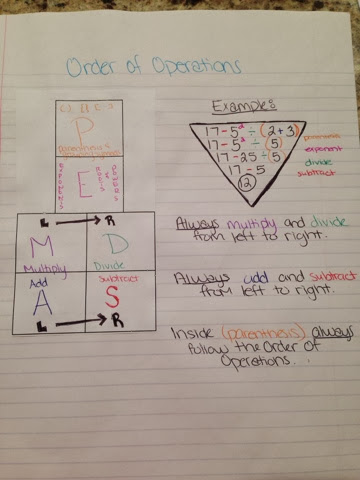 Order of Operations
P
Parenthesis
E
EXPONENTS
L → R
M
Multiply
D
Divide
Add
A
Subtract
S
L → R
Examples
17 - 5² ÷ (2 + 3)
17 - 5² ÷ (5)
17 - 25 ÷ (5)
17 - 5
12
parenthesis
exponent
divide
subtract
Always multiply and divide
from left to right.
Always add and subtract
from left to right.
Inside (parenthesis) always
follow the Order of
Operations.